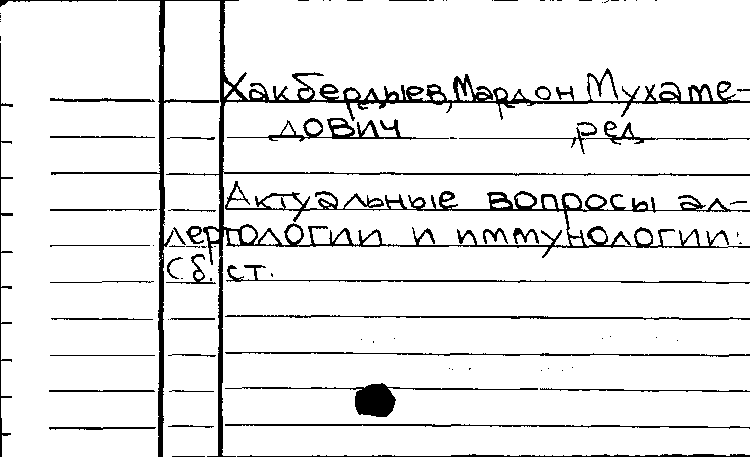 Хакбердыев, Мардон Мухаме-
дович ,ред.
Актуальные вопросы ал-
лергологии и иммунологии:
Сб. ст.